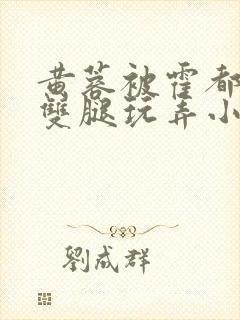 黄蓉被霍都
雙腿玩弄小
劉成群